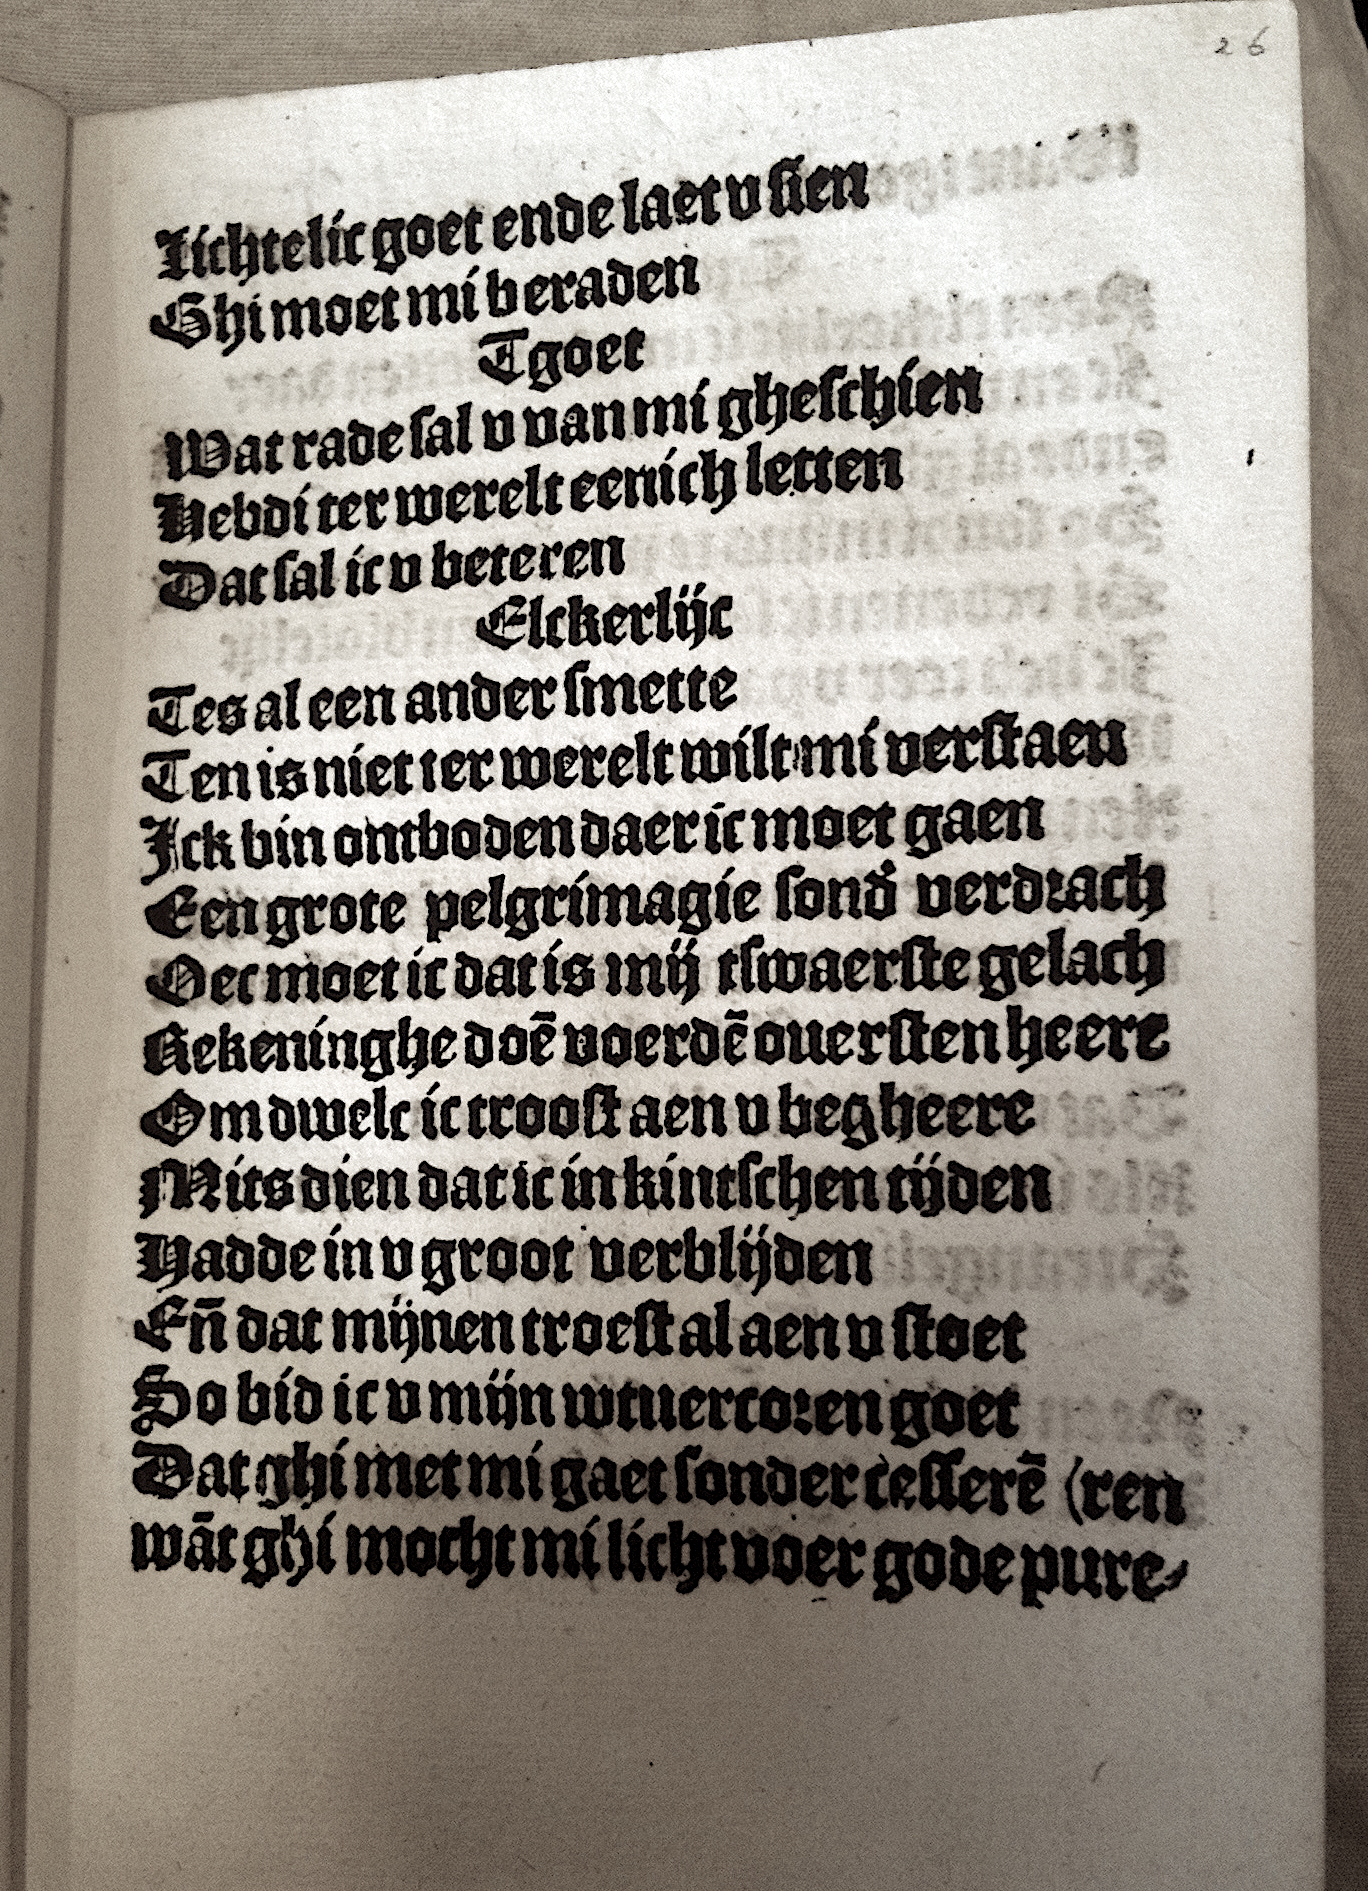 26
Lichtelic goet ende laet v sien
Ghi moet mi beraden
Tgoet
Wat rade sal v van mi gheschien
Hebdi ter werelt eenich letten
Dat sal ic v beteren
Elckerlijc
Tes al een ander smette
Ten is niet ter werelt wilt mi verstaen
Ick bin ontboden daer ic moet gaen
Een grote pelgrimagie sond̉ verdrach
Oec moet ic dat is mij tswaerste gelach
Rekeninghe doē voer dē ouersten heere
Om dwelc ic troost aen v begheere
Mits dien dat ic in kintschen tijden
Hadde in v groot verblijden
Eñ dat mijnen troest al aen v stoet
So bid ic v mijn wtuercoren goet
Dat ghi met mi gaet sonder cesserē (ren
wāt ghi mocht mi licht voer gode pure⸗